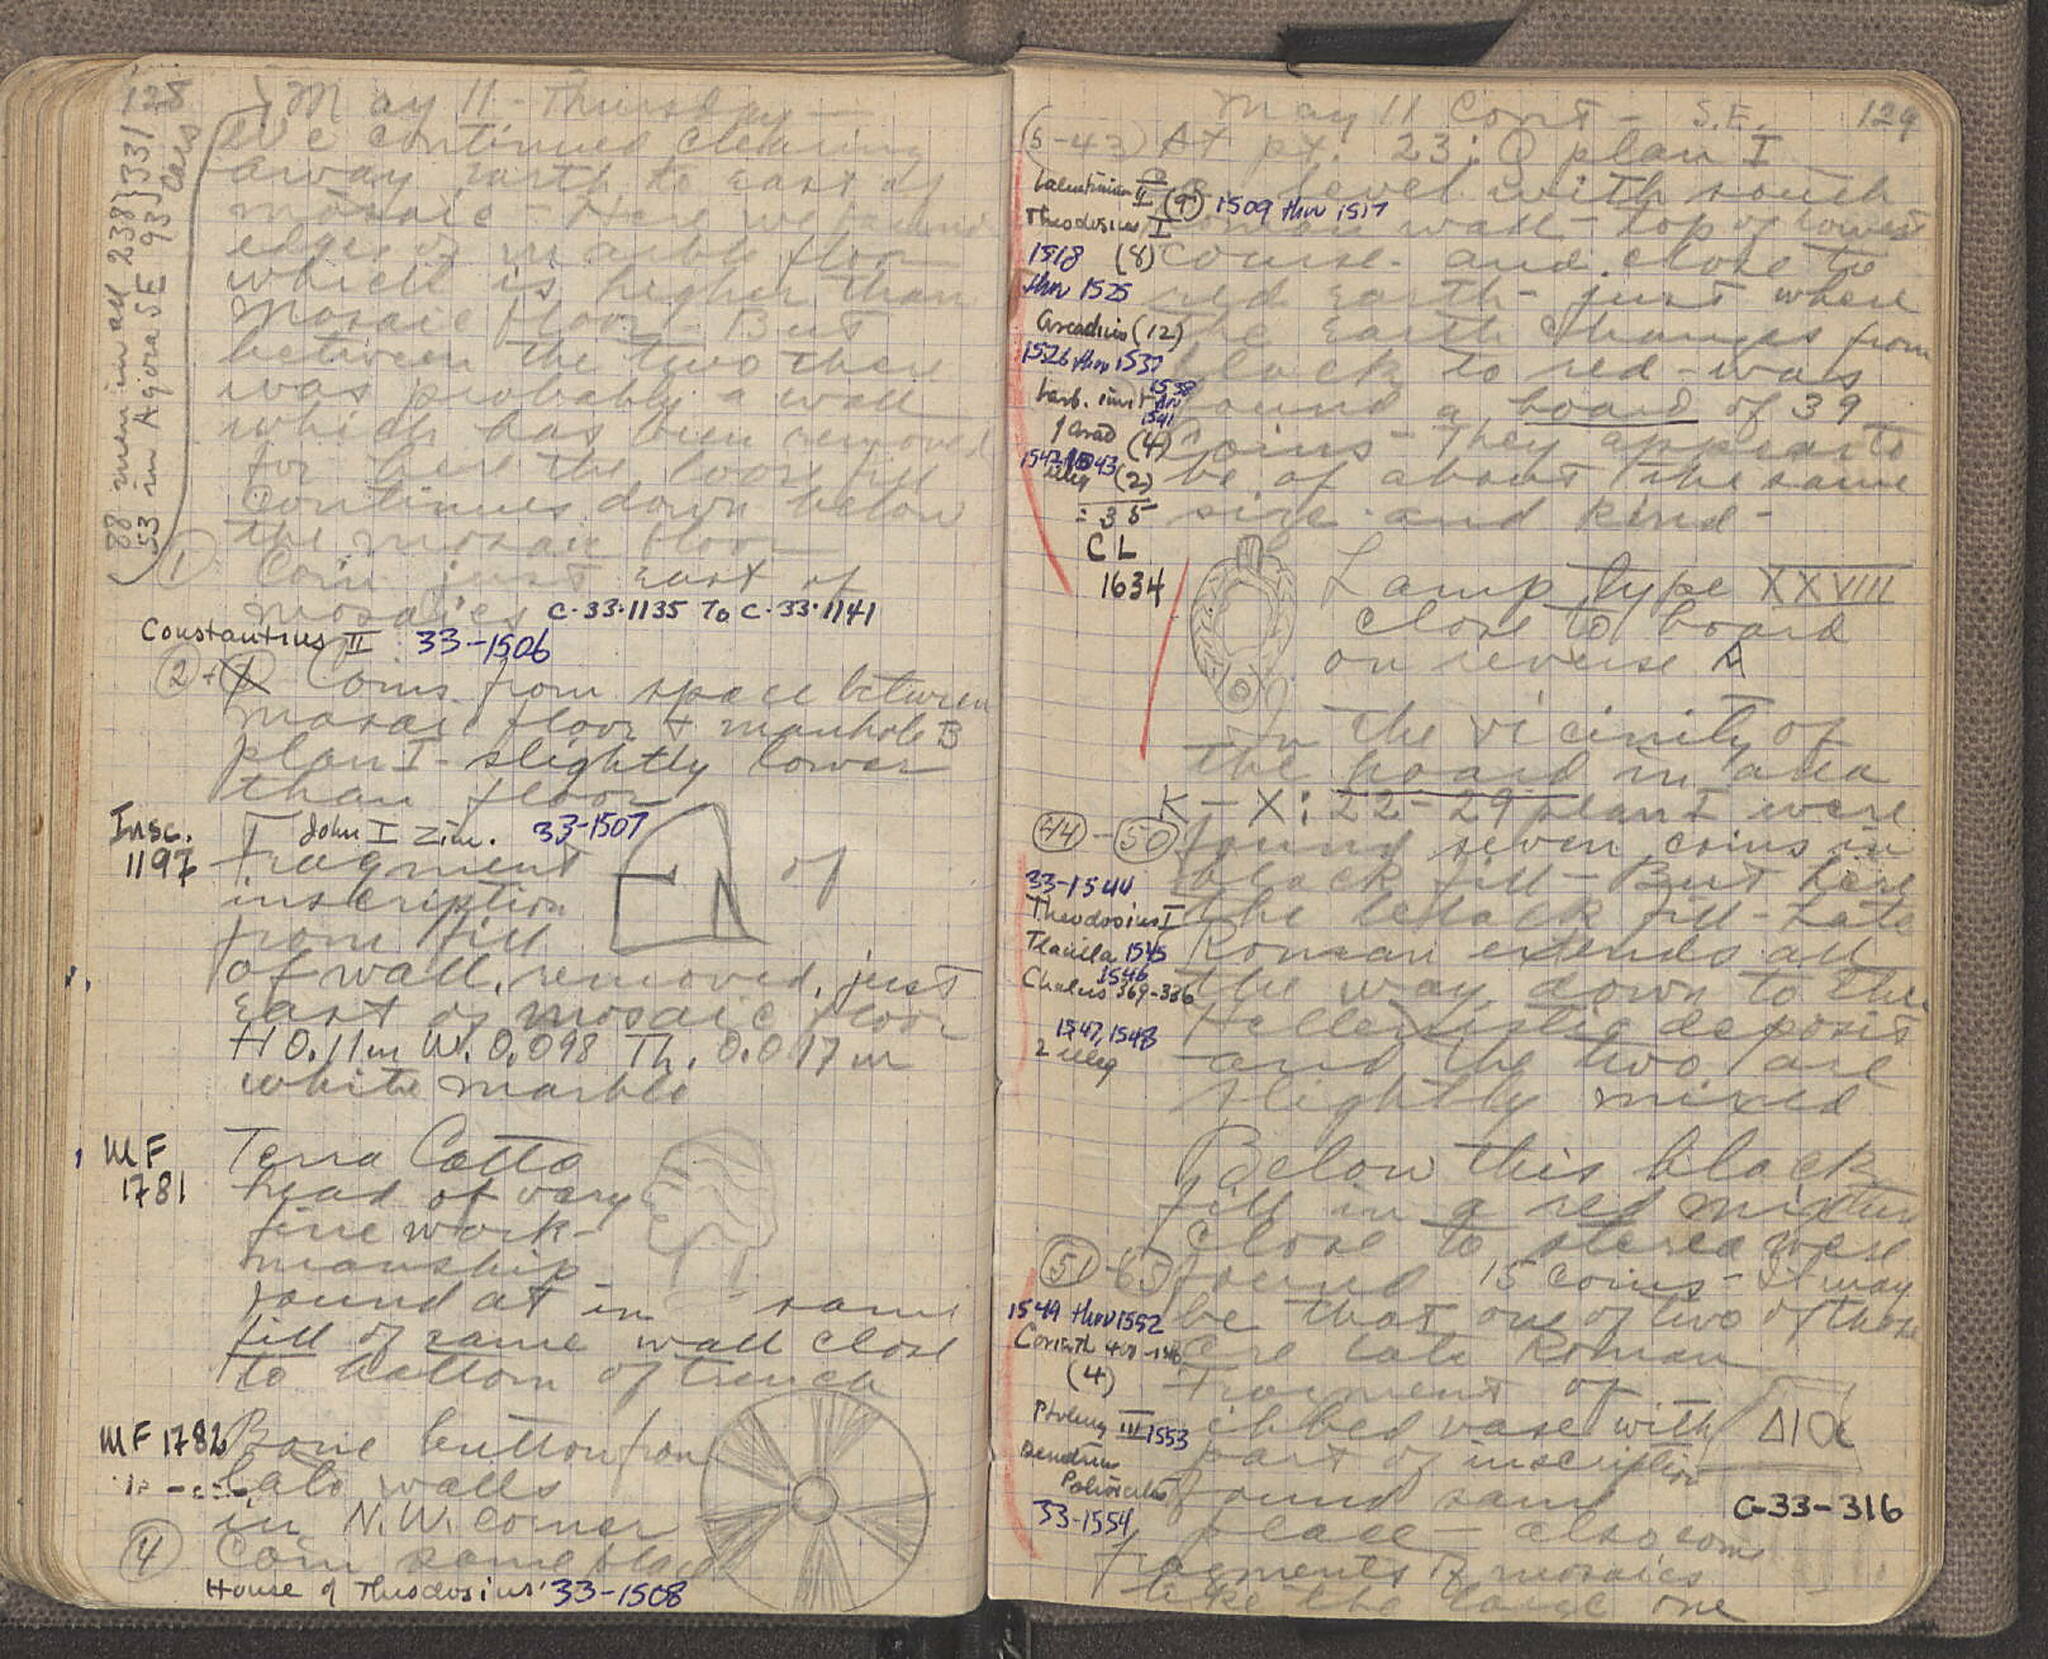 128
May 11 - Thursday -
We continued clearing
away earth to east of
mosaic - Here we found
edges of marble floor
which is higher than
mosaic floor. But
between the two there
was probably a wall
which has been removed
for here the loose fill
continues down below
the mosaic floor
88 men in all 238 } 331
53 in Agora SE 93 } cars
① Coin just east of
mosaics C-33-1135 To C-33-1141
Constantius II 33-1506
② + Coins from space between
mosaic floor + manhole B
plan I - slightly lower
than floor
John I Zim. 33-1507
Insc.
1197
Fragment of
inscription
from fill
of wall, removed, just
east of mosaic floor
H 0.11m W. 0.098 Th. 0.017m
white marble
MF
1781
Terra Cotta
head of very
fine work-
manship
found at in same
fill of same wall close
to bottom of trench
MF 1782 Bone button from
late walls
in N.W. corner
④ Coin same place
House of Theodosius 33-1508
May 11 Cont - S.E. 129
(5-43) At pt. 23:Q plan I
level with south
Roman wall - top of lowest
course - and close to
red earth - just where
the earth changes from
black to red - was
found a hoard of 39
coins - They appear to
be of about the same
size and kind -
Valentinian II (9) 1509 thru 1517
Theodosius I
1518 (8)
thru 1525
Arcadius (12)
1526 thru 1537
barb. imit 1538
thru
1541
(4)
1542 1543
illeg (2)
= 35
CL
1634
Lamp type XXVIII
close to hoard
on reverse A
In the vicinity of
the hoard in area
K - X : 22 - 29 plan I were
㊹ - ㊿ found seven coins in
black fill - But here
the black fill - Late
Roman extends all
the way down to the
Hellenistic deposit
and the two are
slightly mixed
33-1544
Theodosius I
1545
1546
Chalcis 369-336
1547, 1548
2 illeg
Below this black
fill in a red mixture
close to stereo were
(51) - 65 found 15 coins - It may
be that one of two of these
are late Roman
1549 thru 1552
Corinth 400-146
(4)
Ptolemy III 1553
Demetrius
Poliorcetes
33-1554
Fragment of
ribbed vase with
part of inscription
found same
place - also some
fragments of mosaics
like the large one
ΔΙΟ
C-33-316